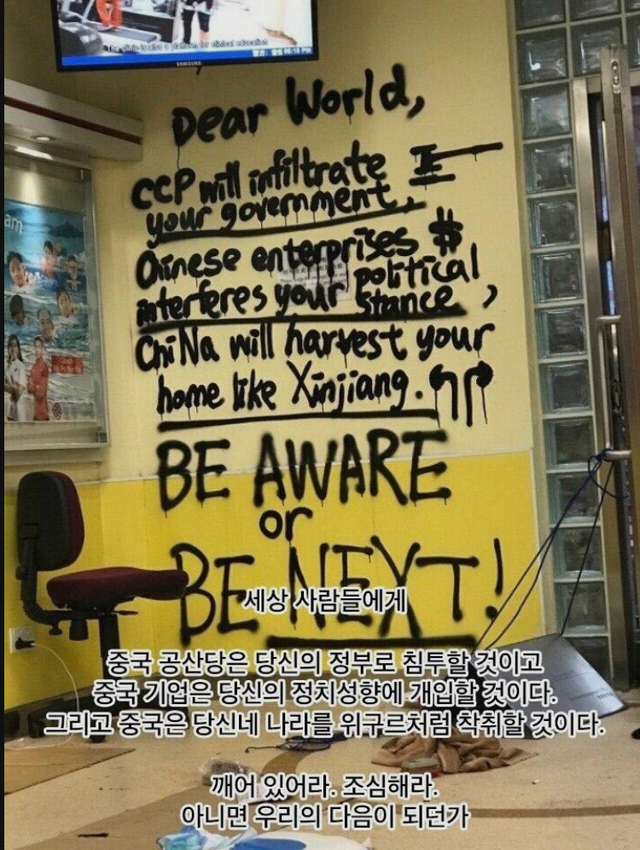 The clinic is also a platform for clinical education
SAMSUNG
Dear World,
CCP will infiltrate
your government,
Chinese enterprises $
interferes your political
stance,
ChiNa will harvest your
home like Xinjiang.
BE AWARE
or
BE NEXT!
세상 사람들에게
중국 공산당은 당신의 정부로 침투할 것이고
중국 기업은 당신의 정치성향에 개입할 것이다.
그리고 중국은 당신네 나라를 위구르처럼 착취할 것이다.
깨어 있어라. 조심해라.
아니면 우리의 다음이 되던가